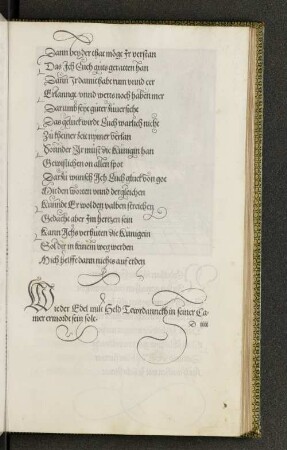 Dann bey der that möge Ir verstan
Das Ich Euch guts geraten han
Dann Ir damit habt rum vnnd eer
Erlanngt vnnd werts noch haben mer
Darumb seyt guter zuuersicht
Das gelück wirdt Euch warlich nicht
Zu kheiner zeit nymer verlan
Sonnder Ir müst die Künigin han
Gewislichen on allen spot
Darzu wünsch Ich Euch glück von got
Mit den worten vnnd dergleichen
Kunnde Er wol den valben streichen
Gedacht aber Im hertzen sein
Kann Ichs verhüten die Künigein
Sol dir in keinen weg werden
Mich helffe dann nichts auf erden
Wie der Edel mülich Held Tewrdannckh in seiner Ca-
mer ermordt sein solt.